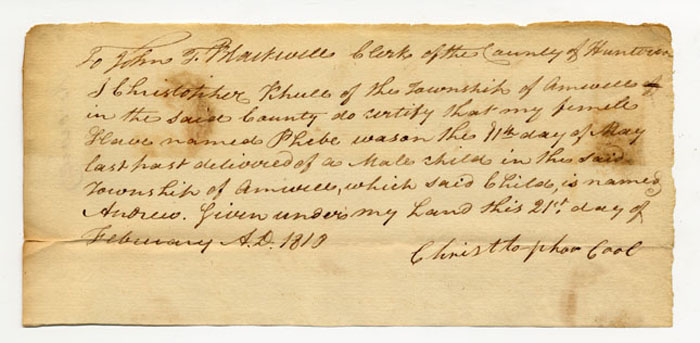 To John T. Blackwell Clerk of the County of Hunterdon
I Christopher Khull of the Township of Amwell
in the said County do certify that my femele
Slave named Phebe was on the 11th day of May
last past delivered of a Male child in the said
Township of Amwell, which said Child, is named
Andrew. Given under my hand this 21st day of
February A.D. 1818
Christtophor Cool